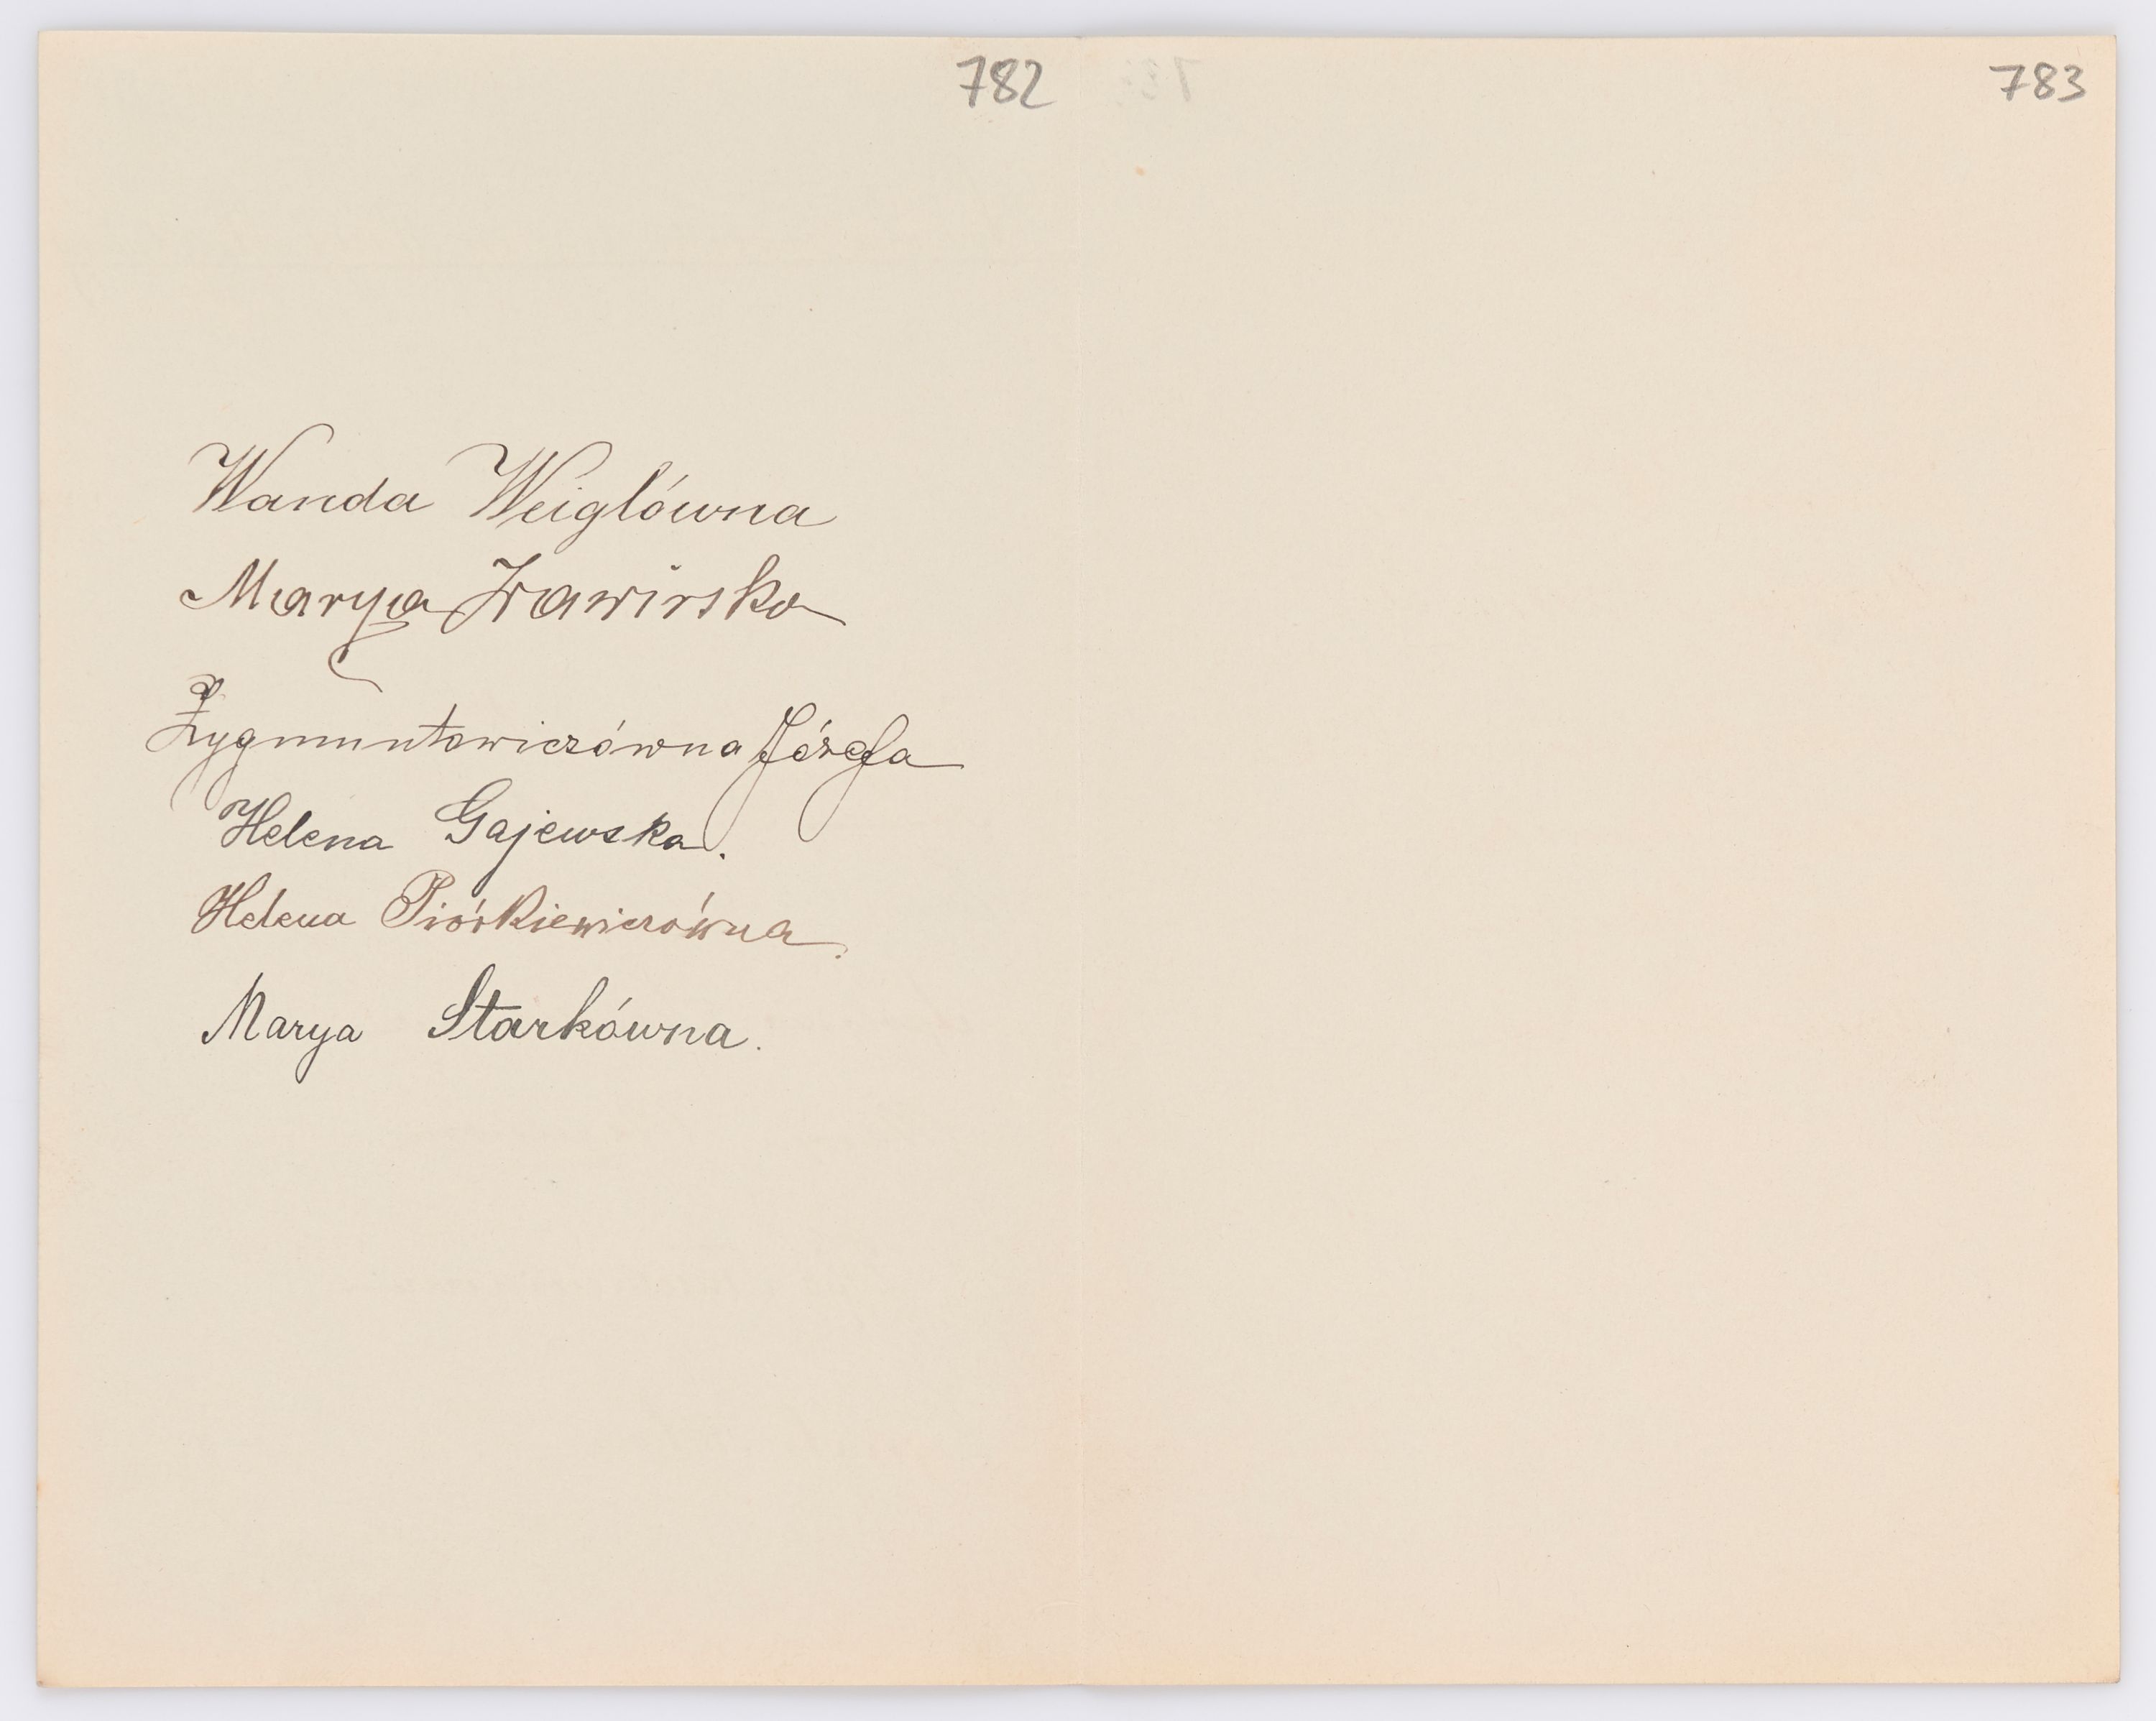 782
783
Wanda Weiglówna
Marya Zawirska
Zygmuntowiczówna Józefa
Helena Gajewska.
Helena Piórkiewiczówna.
Marya Starkówna.